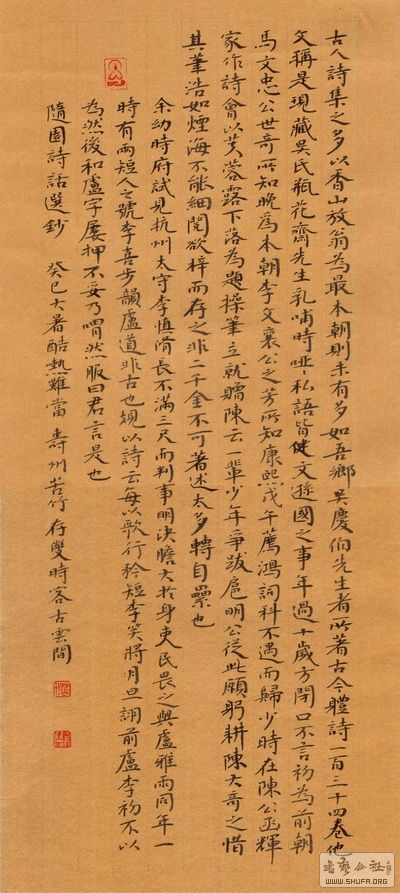 古人詩集之多以香山放翁為最本朝則未有多如吾鄉吳慶伯先生者所著古今體詩一百三十四卷他
文稱是現藏吳氏瓶花齋先生乳哺時哑哑私語皆建文遜國之事年過十歲方閉口不言初為前朝
馬文忠公世奇所知晚為本朝李文襄公之芳所知康熙戊午薦鴻詞科不遇而歸少時在陳公函輝
家作詩會以芙蓉露下落為題操筆立就贈陳云一輩少年爭跋扈明公從此願躬耕陳大哥之惜
其筆浩如煙海不能細閱欲梓而存之非二千金不可著述太多轉自累也
余幼時府試見杭州太守李慎脩長不滿三尺而判事明決膽大於身吏民畏之與盧雅雨同年一
時有兩短人之號李喜步韻盧道非古也規以詩云每以歌行矜短李笑將月旦詡前盧李初不以
為然後和盧字屢押不妥乃喟然服曰君言是也
隨園詩話選鈔 癸巳大暑酷熱難當 壽州苦竹存雙時客古雲間
書藝公社
WWW.SHUFR.ORG